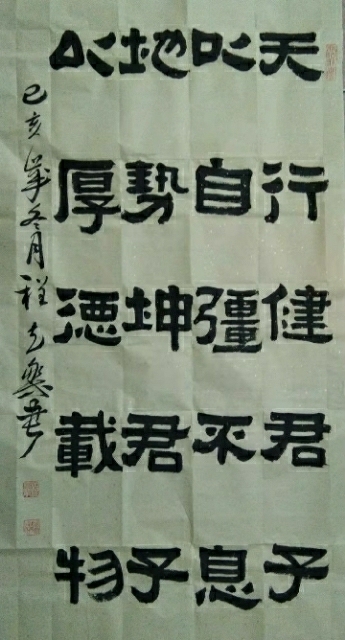 天行健君子
以自彊不息
地勢坤君子
以厚德載物
己亥年冬月程